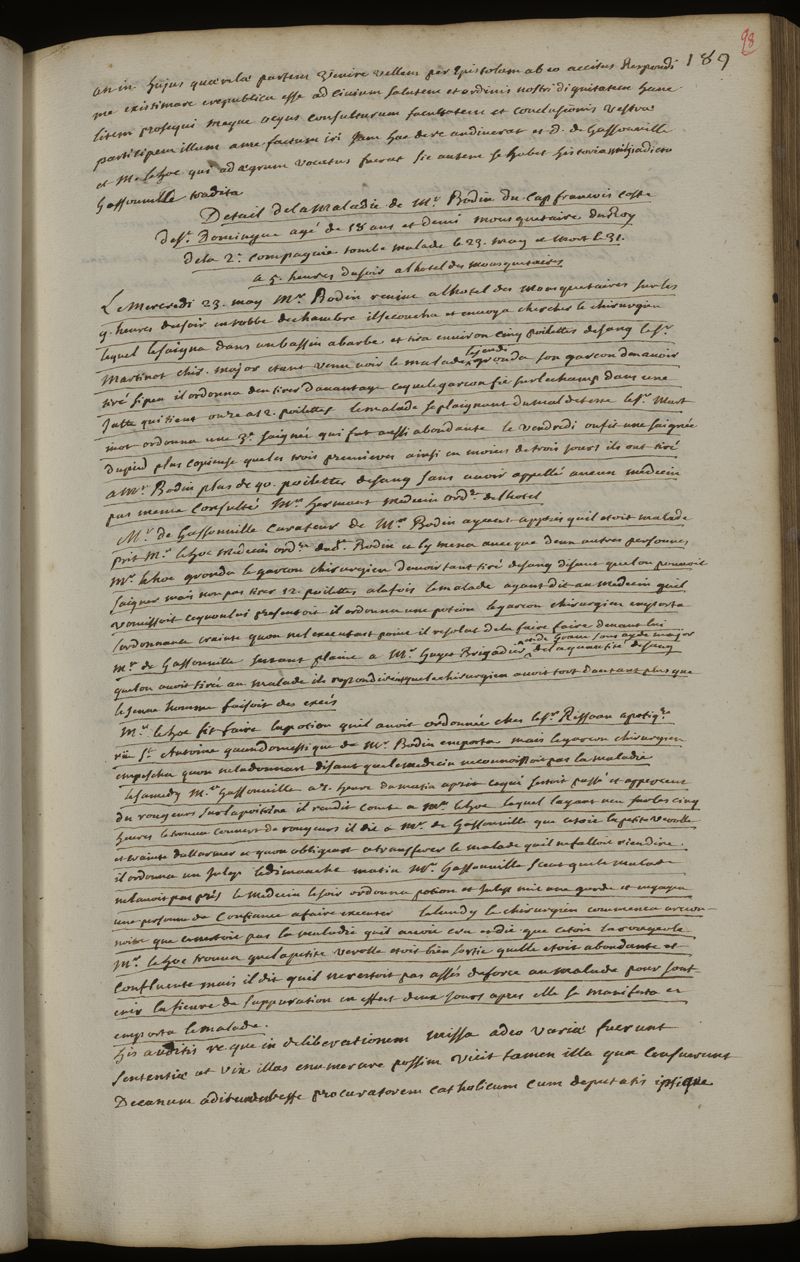 98
189
an in hujus quærelæ partem venire vellem per Epistolam ab eo accitus Respondi
me existimare e republica esse ad civium salutem et ordinis nostri dignitatem hanc
litem prosequi meque ægus consulturum facultatem et conclusionis vestræ
participem illum a me factum iri Jam hac de re audiverat et D. de Gassonville
et M. lehoc qui ad ægrum vocatus fuerat sic autem se habet historia mihi a dicto
Gassonville tradita
Detail de la Maladie de Mr. Bodin du Cap francois coste
de St. Domingue agé de 18 ans et demi mousquetaire du Roy
de la 2e. compagnie tombe malade le 23. may et mort le 31.
a 5. heures du soir a lhotel des mousquetaires
Le Mercredi 23. may Mr. Bodin revint a lhotel des mousquetaires sur les
9. heures du soir en robbe de chambre il se coucha et envoya chercher le chirurgien
lequel le saigna dans un bassin a barbe et tira environ cinq poilettes de sang le Sr.
Martinot chir. major etant venu voir le malade gronda son garcon den avoir
tiré si peu il ordonna den tirer davantage ce que le garcon fit sur le champ dans une
Jatte qui tient onze a 12. poilettes le malade se plaignant du mal de teste le Sr. Mart
inot ordonna une 3e. saignée qui fut aussi abondante le vendredi on fit une saignée
du pied plus copieuse que les trois premieres ainsi en moins de trois jours ils ont tiré
a Mr. Bodin plus de 40. poilettes de sang sans avoir appellé aucun medecin
pas meme consulté Mr. hermant medecin ordre. de lhotel
Mr. de Gassonville curateur de Mr. Bodin ayant appris quil etoit malade
prit Mr. lehoc medecin ordre dud. Bodin et ly mena avec que deux autres personnes
Mr. lehoc gronda le garcon chirurgien davoir tant tiré de sang disant que lon pouvoit
saigner mais non pas tirer 12. poilettes a la fois le malade ayant dit au medecin quil
vomissoit ce quon lui presentoit il ordonna une potion le garcon chirurgien emporta
lordonnance crainte quon nel executast point il resolut de la faire faire devant lui
Mr. de Gassonville portant plainte a Mr. Guyot Brigadier et a de Gram sous ayde major de la quantité de sang
que lon avoit tiré au malade ils repondirent que le chirurgien avoit tort dautant plus que
le jeune homme faisoit des excés
Mr. lehoc fit faire la potion quil avoit ordonnée ches le Sr. Rissoan apotiqre.
rüe St. Antoine quun domestique de Mr. Bodin emporta mais le garcon chirurgien
empescha quon ne la donnast disant que le medecin ne connoissoit pas la maladie
le samedy Mr. Gassonville a 2. heure du matin aprit ce qui sestoit passé et appercent
du rougeurs sur la poitrine il rendit conte a Mr. lehoc lequel layant veu sur les cinq
heures le trouva couvert de rougeurs il dit a Mr. de Gassonville que cetoit la petite verolle
et crainte dallarmer et quon obligeast a transferer le malade quil ne falloit rien dire.
il ordonna un Julep le dimanche matin Mr. Gassonville sceut que le malade
nel avoit pas pris le medecin le soir ordonna potion et Julep mit une garde et engagea
une personne de confiance a faire executer le lundy le chirurgien commenca a recon-
noitre que ce nestoit pas la maladie quil avoit cru et dit que cetoit la rougeole
Mr. lehoc trouva que la petite verolle etoit bien sortie quelle etoit abondante et
confluente mais il dit quil ne restoit pas assés de force au malade pour sout
enir la fievre de supparation en effect deux jours apres elle se manifesta et
emporta le malade.
his auditis re que in deliberationem missa adeo variæ fuerunt
sententiæ ut vix illas enumerare possim vicit tamen illa qua censuerunt
Decanum adeundum esse procuratorem catholicum cum deputatis ipsique